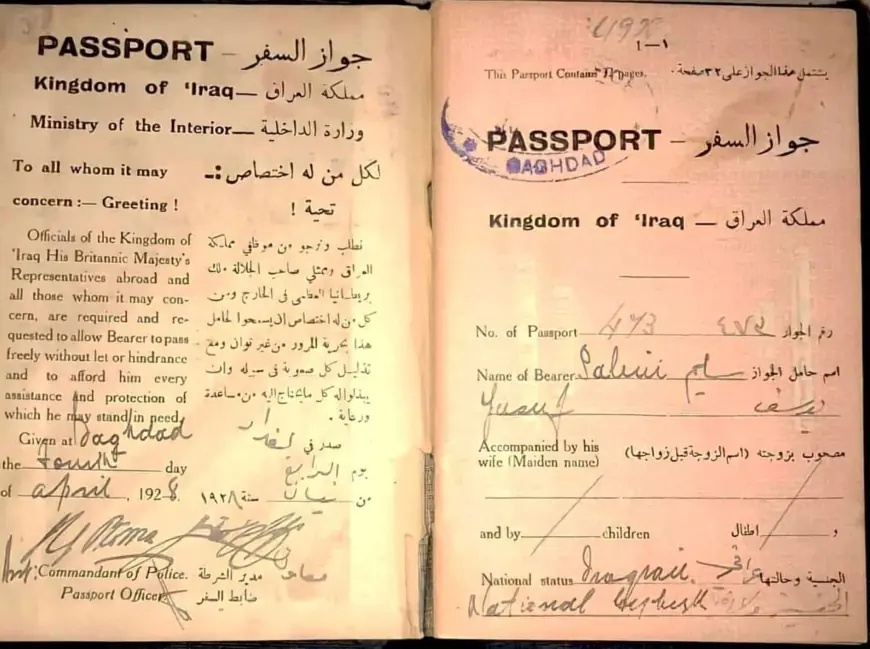 PASSPORT – جواز السفر
Kingdom of 'Iraq — مملكة العراق
Ministry of the Interior — وزارة الداخلية
To all whom it may
concern :— Greeting !
لكل من له اختصاص :-
تحية !
Officials of the Kingdom of
'Iraq His Britannic Majesty's
Representatives abroad and
all those whom it may con-
cern, are required and re-
quested to allow Bearer to pass
freely without let or hindrance
and to afford him every
assistance and protection of
which he may stand in need.
نطلب ونرجو من موظفي مملكة
العراق وممثلي صاحب الجلالة ملك
بريطانيا العظمى في الخارج ومن
كل من له اختصاص ان يسمحوا لحامل
هذا بحرية المرور من غير توان ومع
تذليل كل صعوبة في سبيله وان
يبذلوا له كل ما يحتاج اليه من مساعدة
ورعاية .
Given at Baghdad
the fourth day
of april, 1928.
صدر في بغداد
يوم الرابع
من نيسان سنة ١٩٢٨
Commandant of Police.
Passport Officer.
معاون مدير الشرطة
ضابط السفر
١–١
This Passport Contains 32 pages.
يشتمل هذا الجواز على ٣٢ صفحة .
PASSPORT – جواز السفر
BAGHDAD
Kingdom of 'Iraq — مملكة العراق
No. of Passport 473 ٤٧٣ رقم الجواز
Name of Bearer Salim سليم اسم حامل الجواز
Yusuf يوسف
Accompanied by his
wife (Maiden name)
مصحوب بزوجته (اسم الزوجة قبل زواجها)
and by children
و اطفال
National status Iraqian. عراقي الجنسية وحالتها
National